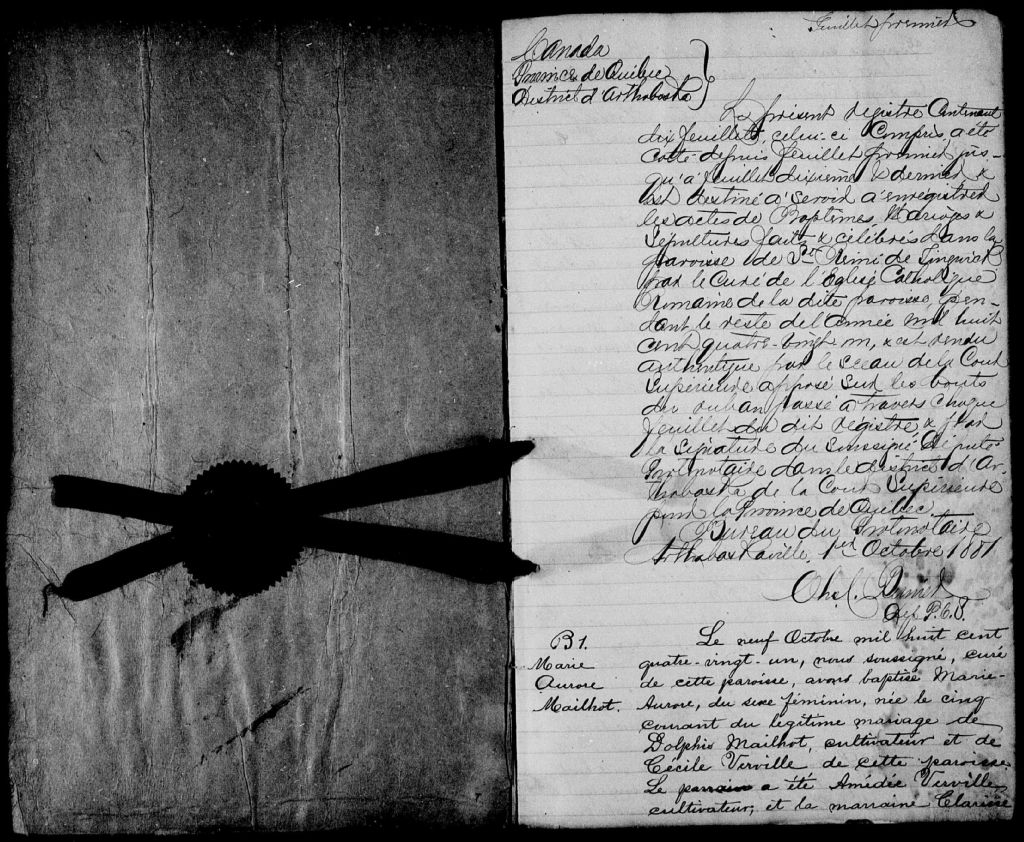 Feuillet premier
Canada
Province de Québec
District d'Arthabaska
Le présent registre Contenant
dix feuillets, celui-ci Compris a été
Cotté depuis feuillet premier jus-
qu'à feuillet dixième & dernier &
est destiné à servir à enregistrer
les actes de Baptêmes, Mariages &
Sépultures faits & célébrés dans la
paroisse de St Rémi de Tingwick
par le Curé de l'Eglise Catholique
Romaine de la dite paroisse, pen-
dant le reste de l'année mil huit
cent quatre-vingt un, & est rendu
authentique par le sceau de la Cour
Supérieure apposé sur les bouts
du ruban passé à travers chaque
feuillet du dit registre & par
la signature du Soussigné Député
Protonotaire dans le district d'Ar-
thabaska de la Cour Supérieure
pour la Province de Québec.
Bureau du Protonotaire
Arthabaskaville, 1er Octobre 1881
Chs.
Dep P.C.S.
B1.
Marie
Aurore
Mailhot.
Le neuf Octobre mil huit cent
quatre-vingt-un, nous soussigné, curé
de cette paroisse, avons baptisé Marie-
Aurore, du sexe féminin, née le cinq
courant du légitime mariage de
Dolphis Mailhot, cultivateur et de
Cécile Verville de cette paroisse.
Le parrain a été Amédée Verville,
cultivateur, et la marraine Clarisse